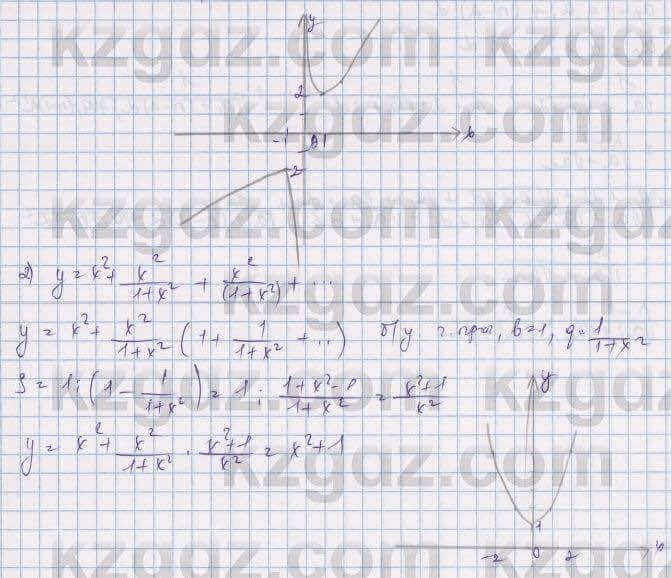 y
2
-1 0 1
-2
2) y = x² + x²/(1+x²) + x²/(1+x²) + ...
y = x² + x²/(1+x²) (1 + 1/(1+x²) + ..) б/у г. пр., b=1, q = 1/(1+x²)
S = 1 : (1 - 1/(1+x²)) = 1 : (1+x²-1)/(1+x²) = (x²+1)/x²
y = x² + x²/(1+x²) · (x²+1)/x² = x²+1
y
1
-2 0 2
kzgdz.com
kzgdz.com
kzgdz.com
kzgdz.com
kzgdz.com
kzgdz.com
kzgdz.com